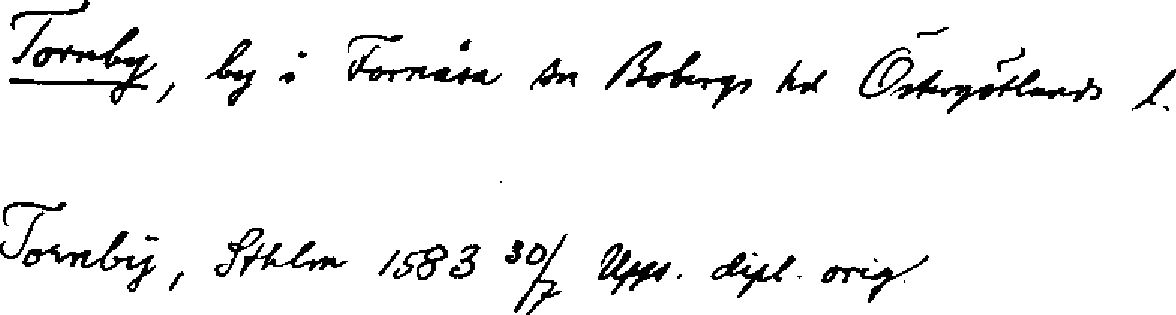 Tornby, by i Fornåsa sn Bobergs hd Östergötlands l.
Tornbÿ, Sthlm 1583 30/7 Upps. dipl. orig.